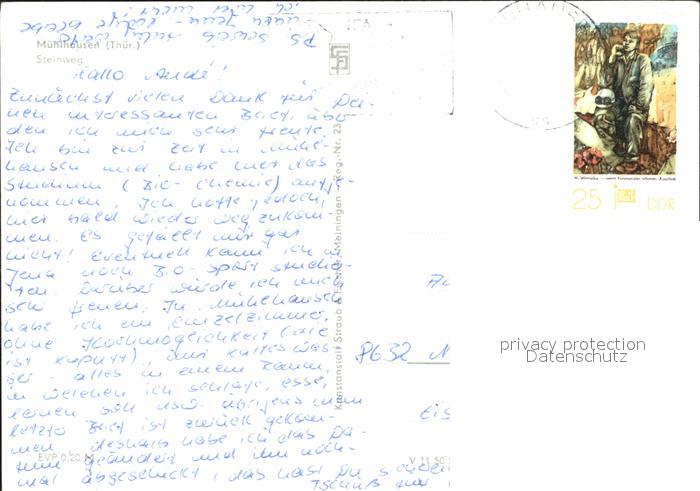 Mühlhausen (Thür.)
Steinweg
Hallo André!
Zunächst vielen Dank für Dei-
nen interessanten Brief, über
den ich mich sehr freute.
Ich bin zur Zeit in Mühl-
hausen und habe hier das
Studium (Bio-Chemie) aufge-
nommen. Ich hoffe jedoch,
hier bald wieder wegzukom-
men. Es gefällt mir gar
nicht! Eventuell kann ich in
Jena noch Bio-Sport studie-
ren. Darüber würde ich mich
sehr freuen. In Mühlhausen
habe ich ein Einzelzimmer,
ohne Kochmöglichkeit (die
ist kaputt), nur kaltes Was-
ser - alles in einem Raum,
in welchen ich schlafe, esse,
lernen soll usw. Übrigens mein
letzter Brief ist zurück gekom-
men, deshalb habe ich das Da-
tum geändert und ihn noch-
mal abgeschickt, das hast Du
Tschüß
PS
EVP 0,20 M
V 11 50
Konstanze Straub & Fischer Meiningen - Reg.-Nr. 23
W. Womacka
25
DDR
8632
Eis
privacy protection
Datenschutz